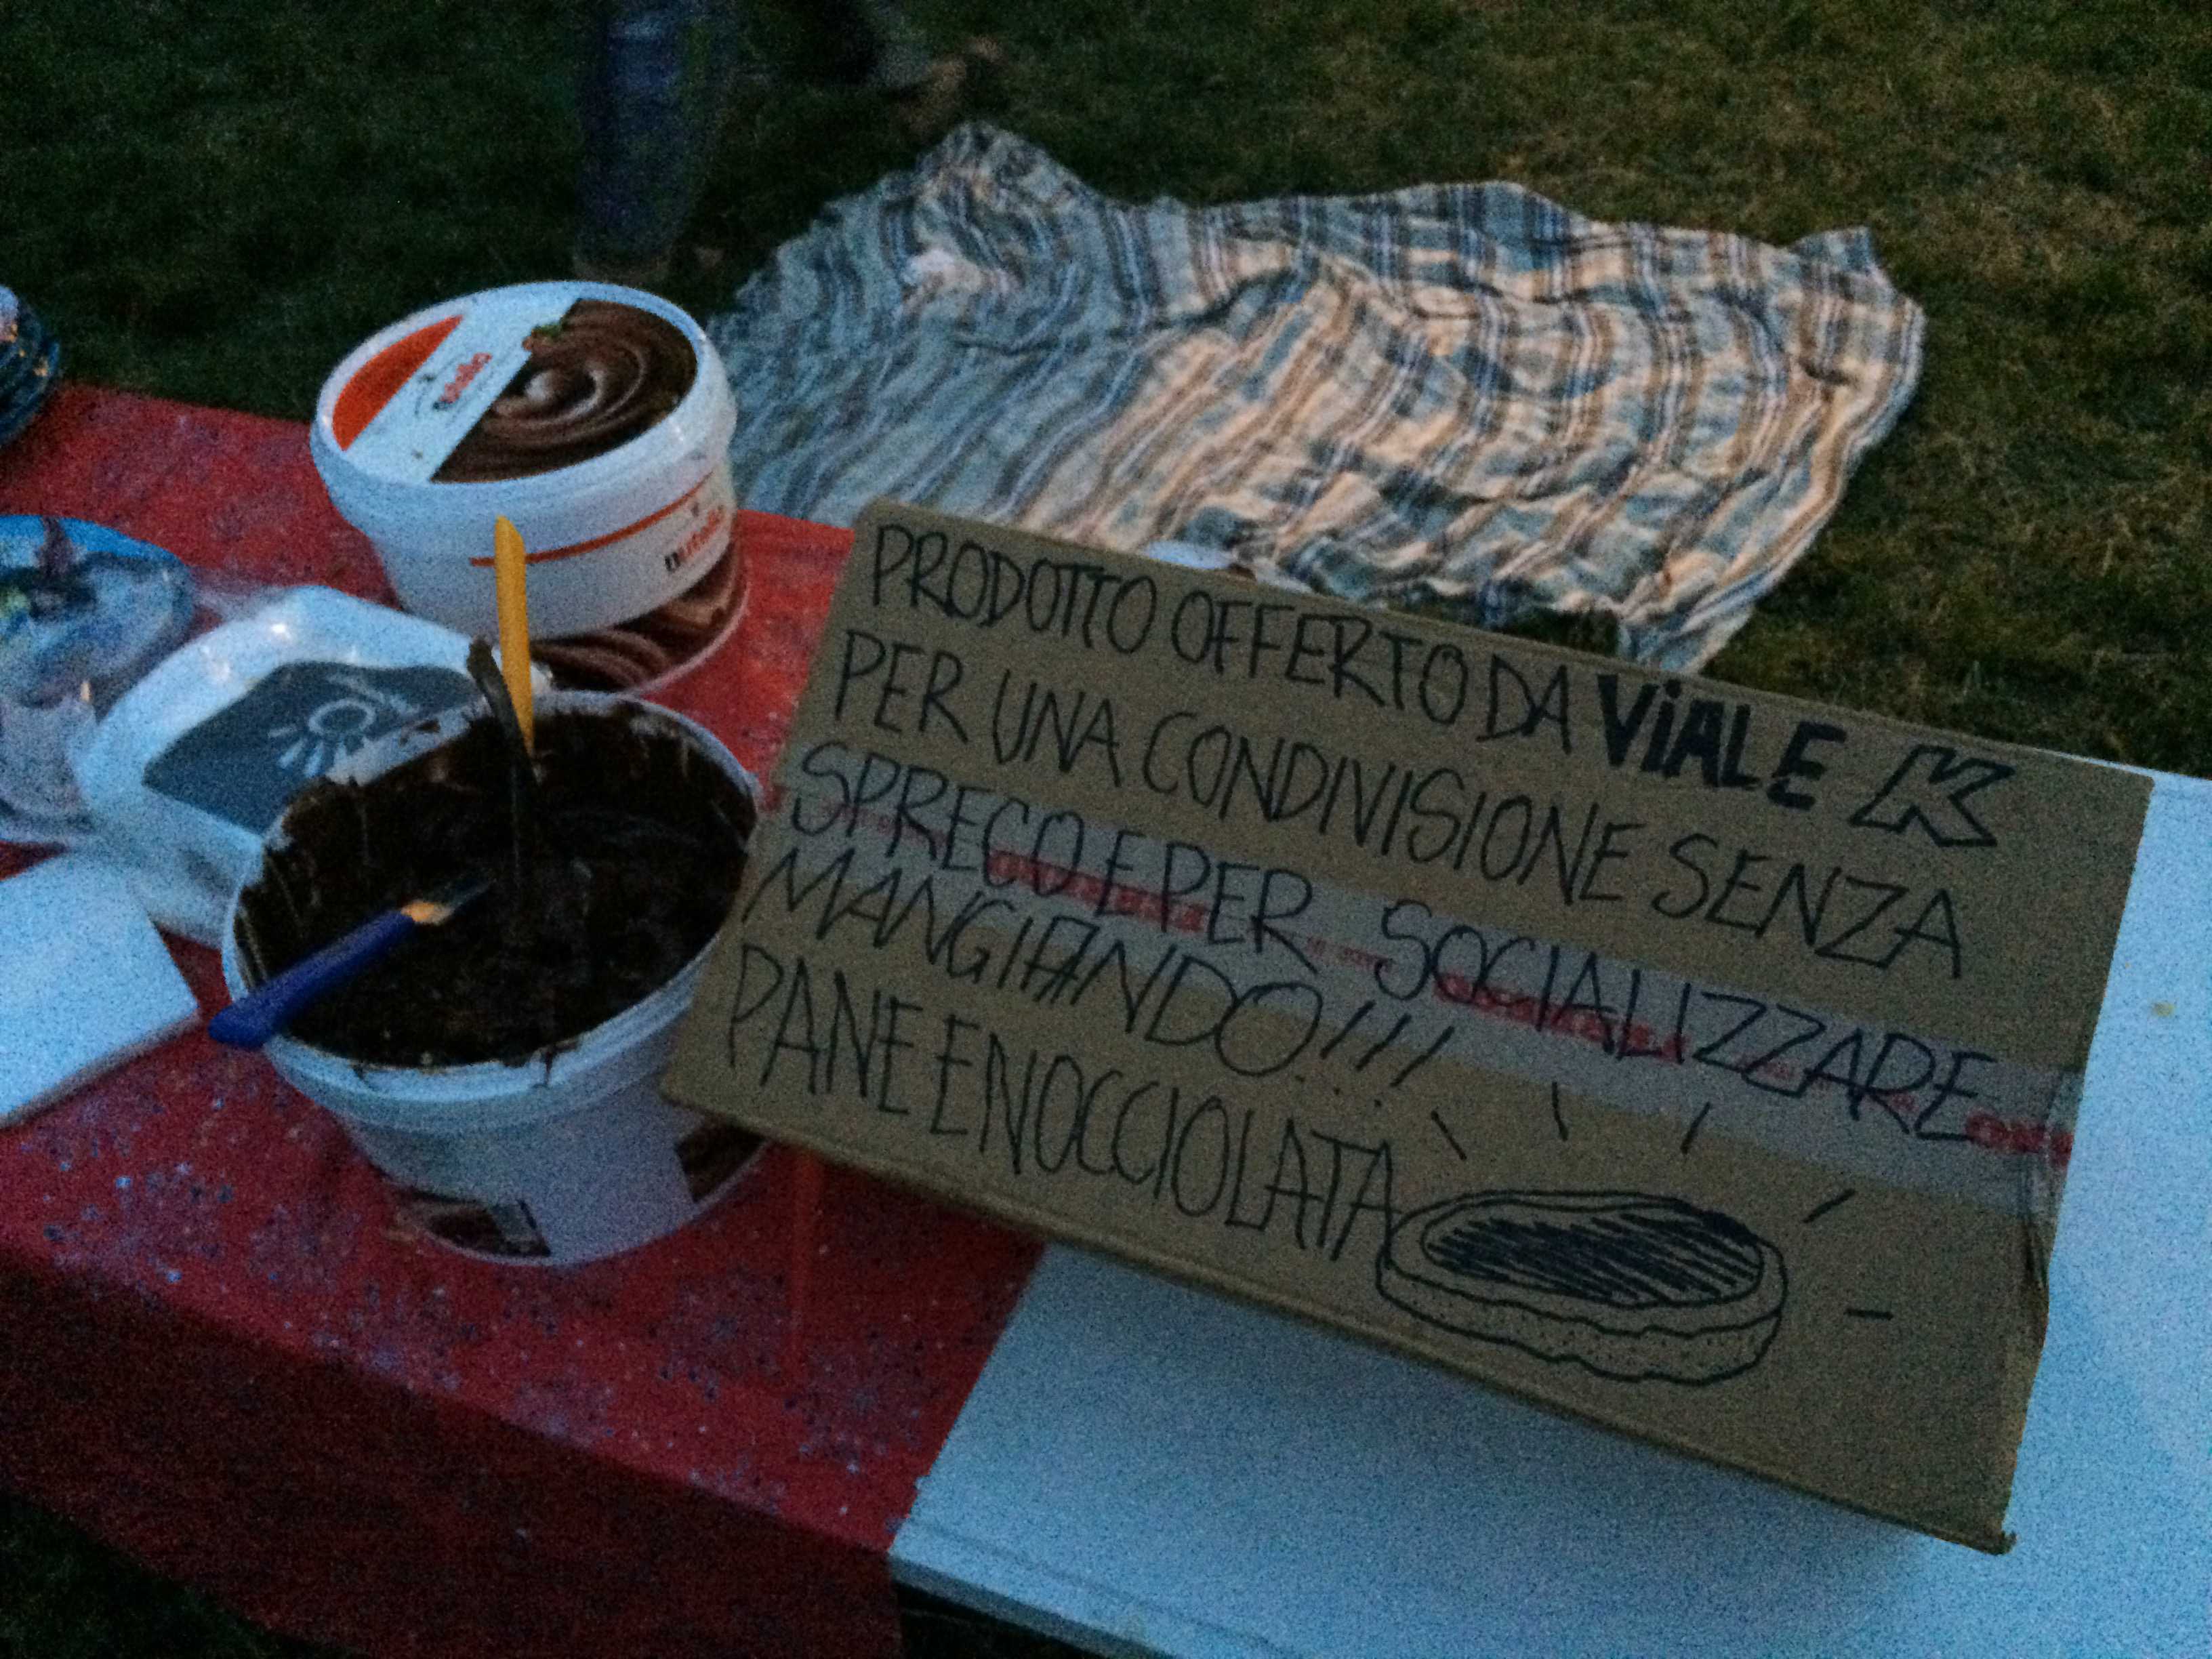 PRODOTTO OFFERTO DA ViALE K
PER UNA CONDIVISIONE SENZA
SPRECO E PER SOCIALIZZARE
MANGIANDO!!!
PANE E NOCCIOLATA
nutella